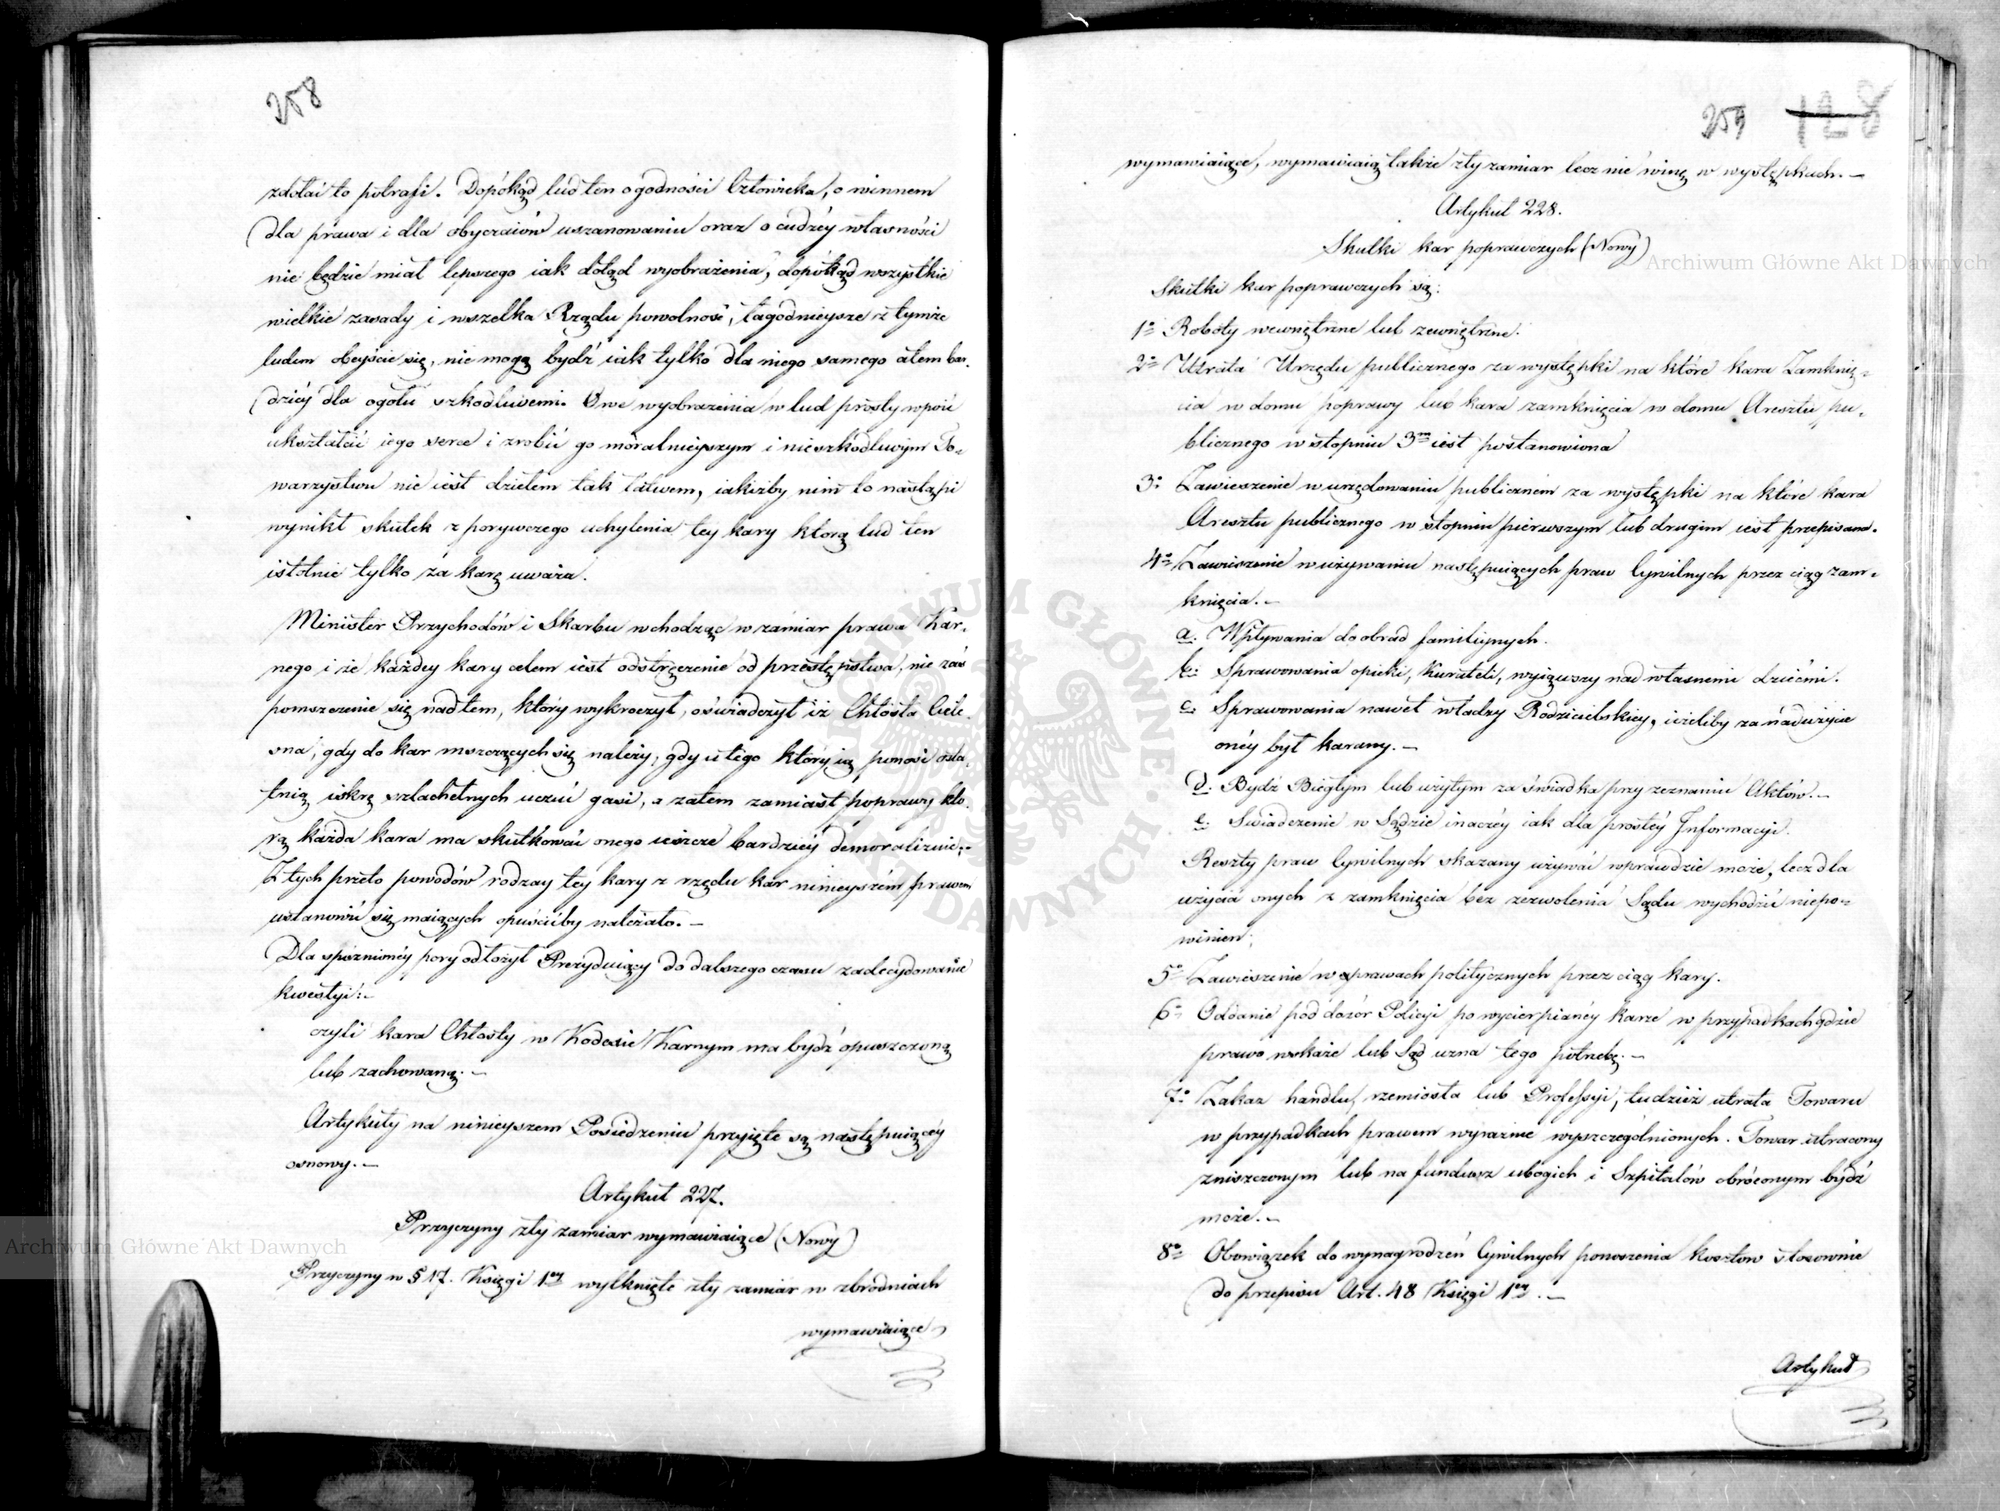 258
zdołai to potrafi. Dopókąd lud ten o godności Człowieka, o winnem
dla prawa i dla obyczaiów uszanowaniu oraz o cudzéy własności
nie będzie miał lepszego iak dotąd wyobrażenia, dopókąd wszystkie
wielkie zasady i wszelka Rządu powolność, łagodnieysze z tymże
ludem obeyście się, nie mogą bydź iak tylko dla niego samego a tem bar-
dziéy dla ogółu szkodliwemi. Owe wyobrażenia w lud prosty wpoić
ukształcić iego serce i zrobić go moralnieyszym i nieszkodliwym To-
warzystwu nie iest dziełem tak łatwem, iakiżby nim to nastąpi
wynikł skutek z porywczego uchylenia tey kary którą lud ten
istotnie tylko za karę uważa.
Minister Przychodów i Skarbu wchodząc w zamiar prawa Kar-
nego i że każdey kary celem iest odstręczenie od przestępstwa, nie zaś
pomszczenie się nad tem, który wykroczył, oświadczył iż Chłosta Ciele-
sna, gdy do kar mszczących się należy, gdy u tego który ią ponosi osta-
tnią iskrę szlachetnych uczuć gasi, a zatem zamiast poprawy któ-
rą każda kara ma skutkować onego ieszcze bardziéy demoralizuie,-
Z tych przeto powodów rodzay téy kary z rzędu kar ninieyszém prawem
ustanowić się maiących opuścićby należało. -
Dla spóźnionéy pory odłożył Prezyduiący do dalszego czasu zadecydowanie
kwestyi:-
czyli kara Chłosty w Kodexie Karnym ma bydź opuszczoną
lub zachowaną. -
Artykuły na ninieyszem Posiedzeniu przyięte są następuiącéy
osnowy. -
Artykuł 227.
Przyczyny zły zamiar wymawiaiące (Nowy)
Przyczyny w § 17. Księgi 1ey wytknięte zły zamiar w zbrodniach
wymawiaiące
259 128
wymawiaiące, wymawiaią także zły zamiar lecz nie winę w występkach. -
Artykuł 228.
Skutki kar poprawczych (Nowy)
Skutki kar poprawczych są:
1o Roboty wewnętrzne lub zewnętrzne.
2o Utrata Urzędu publicznego za występki na które kara Zamknię-
cia w domu poprawy lub kara zamknięcia w domu Aresztu pu-
blicznego w stopniu 3m iest postanowiona
3o Zawieszenie w urzędowaniu publicznem za występki na które kara
Aresztu publicznego w stopniu pierwszym lub drugim iest przepisana.
4o Zawieszenie w używaniu następuiących praw Cywilnych przez ciąg zam-
knięcia. -
a. Wpływania do obrad familiynych.
b. Sprawowania opieki, Kurateli, wyiąwszy nad własnemi dziećmi.
c. Sprawowania nawet władzy Rodzicielskiey, ieżeliby za nadużycie
onéy był karany. -
d. Bydź Biegłym lub użytym za świadka przy zeznaniu Aktów. -
e. Swiadczenie w Sądzie inaczéy iak dla prostéy Informacyi.
Reszty praw Cywilnych skazany używać wprawdzie może, lecz dla
użycia onych z zamknięcia bez zezwolenia Sądu wychodzić niepo-
winien;
5o Zawieszenie w prawach politycznych przez ciąg kary.
6o Oddanie pod dozór Policyi po wycierpianéy karze w przypadkach gdzie
prawo wskaże lub Sąd uzna tego potrzebę. -
7o Zakaz handlu, rzemiosła lub Professyi, tudzież utrata Towaru
w przypadkach prawem wyraźnie wyszczególnionych. Towar utracony
zniszczonym lub na fundusz ubogich i Szpitalów obróconym bydź
może. -
8o Obowiązek do wynagrodzeń Cywilnych ponoszenia kosztów stosownie
do przepisu Art. 48 Księgi 1ey. -
Artykuł
Archiwum Główne Akt Dawnych
Archiwum Główne Akt Dawnych
ARCHIWUM GŁÓWNE AKT DAWNYCH